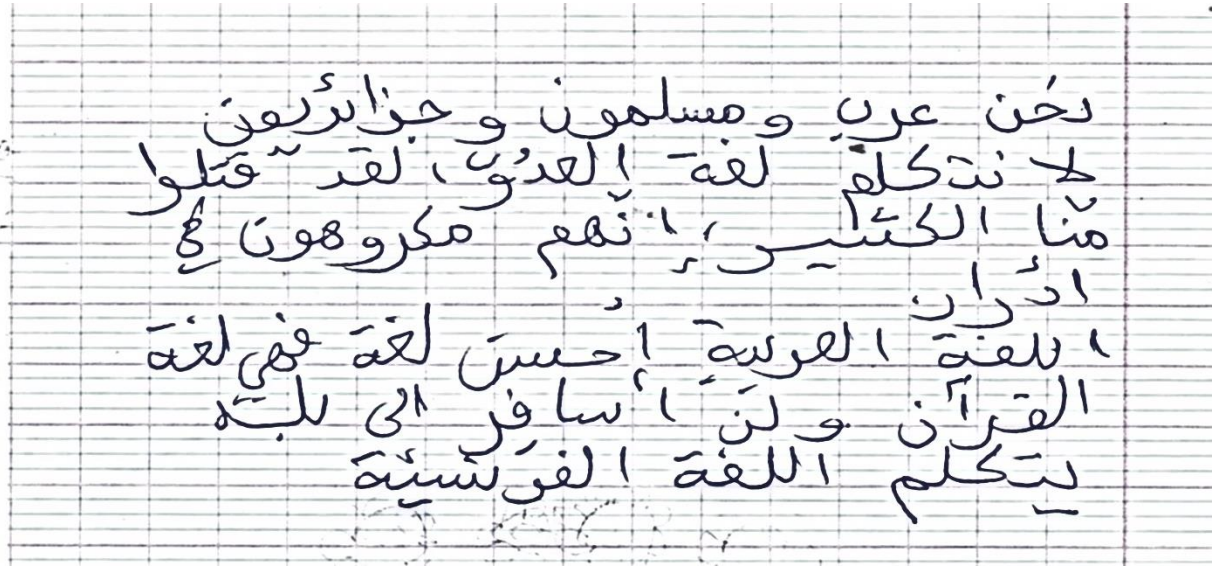 نحن عرب ومسلمون وجزائريون
لا نتكلم لغة العدوّ، لقد قتلوا
منّا الكثير، إنّهم مكروهون في
أدرار
اللغة العربية أحسن لغة فهي لغة
القرآن ولن أسافر الى بلد
يتكلم اللغة الفرنسية